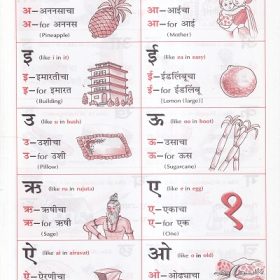 अ–अननसाचा
अ–for अननस
(Pineapple)
आ–आईचा
आ–for आई
(Mother)
इ (like i in it)
इ–इमारतीचा
इ–for इमारत
(Building)
ई (like ea in easy)
ई–ईडलिंबूचा
ई–for ईडलिंबू
[Lemon (large)]
उ (like u in bush)
उ–उशीचा
उ–for उशी
(Pillow)
ऊ (like oo in boot)
ऊ–उसाचा
ऊ–for ऊस
(Sugarcane)
ऋ (like ru in rujuta)
ऋ–ऋषीचा
ऋ–for ऋषी
(Sage)
ए (like e in egg)
ए–एकाचा
ए–for एक
(One)
१
ऐ (like ai in airavat)
ऐ–ऐरणीचा
ओ (like o in old)
ओ–ओढ्याचा